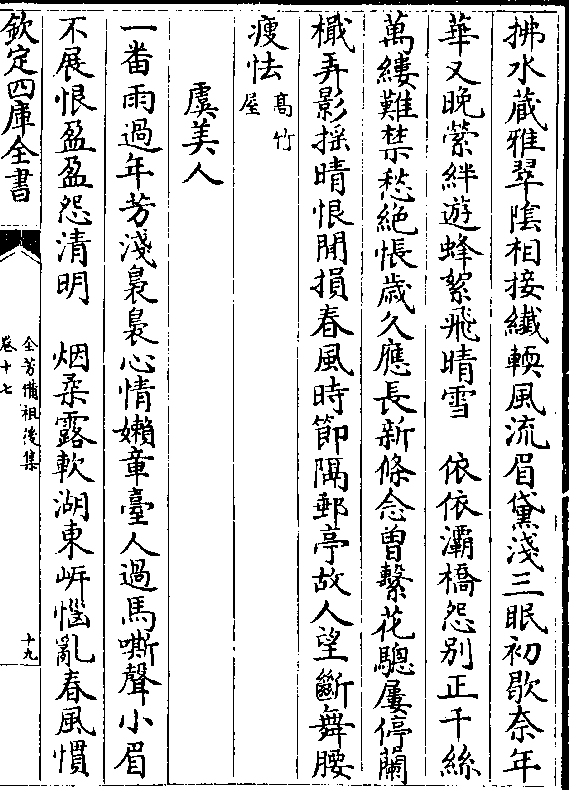 拂水蔵雅翠陰相接纎輭風流眉黛淺三眠初歇奈年
華又晚縈絆遊蜂絮飛晴雪　依依灞橋怨别正千絲
萬縷難禁愁絶悵歲久應長新條念曽繫花驄屢停蘭
檝弄影揺晴恨閒損春風時節隔郵亭故人望斷舞腰
瘦怯高竹屋
虞美人
一畨雨過年芳淺裊裊心情嬾章臺人過馬嘶聲小眉
不展恨盈盈怨清明　烟柔露軟湖東岍惱亂春風慣
欽定四庫全書
全芳備祖後集
卷十七
十九